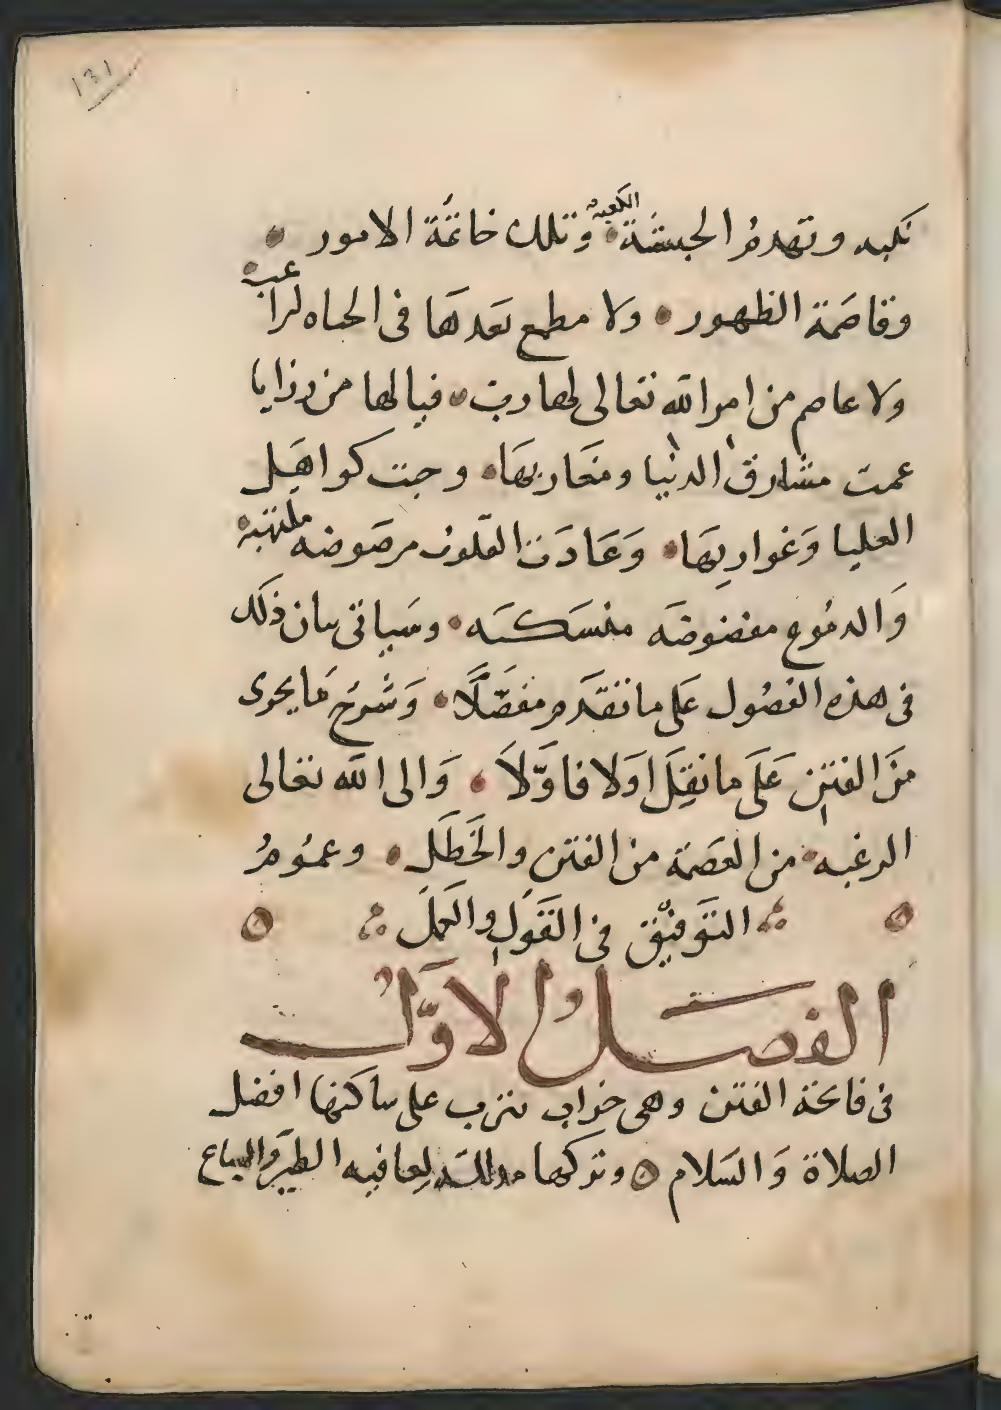 ١٣١
نكبه وتهدم الحبشة الكعبة وتلك خاتمة الامور
وقاصمة الظهور ولا مطمع بعدها فى الحياه لراغب
ولا عاصم من امر الله تعالى لهارب فيالها من رزايا
عمت مشارق الدنيا ومغاربها وجبت كواهل
العليا وغواربها وعادت القلوب مرضوضه ملتهبة
والدموع مفضوضه منسكبه وسياتى بيان ذلك
فى هذه الفصول على ما تقدم مفصلا وشرح ما يجرى
من الفتن على ما نقل اولا فاولا والى الله تعالى
الرغبه من العصمة من الفتن والخطل وعموم
التوفيق فى القول والعمل
الفصل الاول
فى فاتحة الفتن وهى خراب يثرب على ساكنها افضل
الصلاة والسلام وتركها لعافيه الطير والسباع